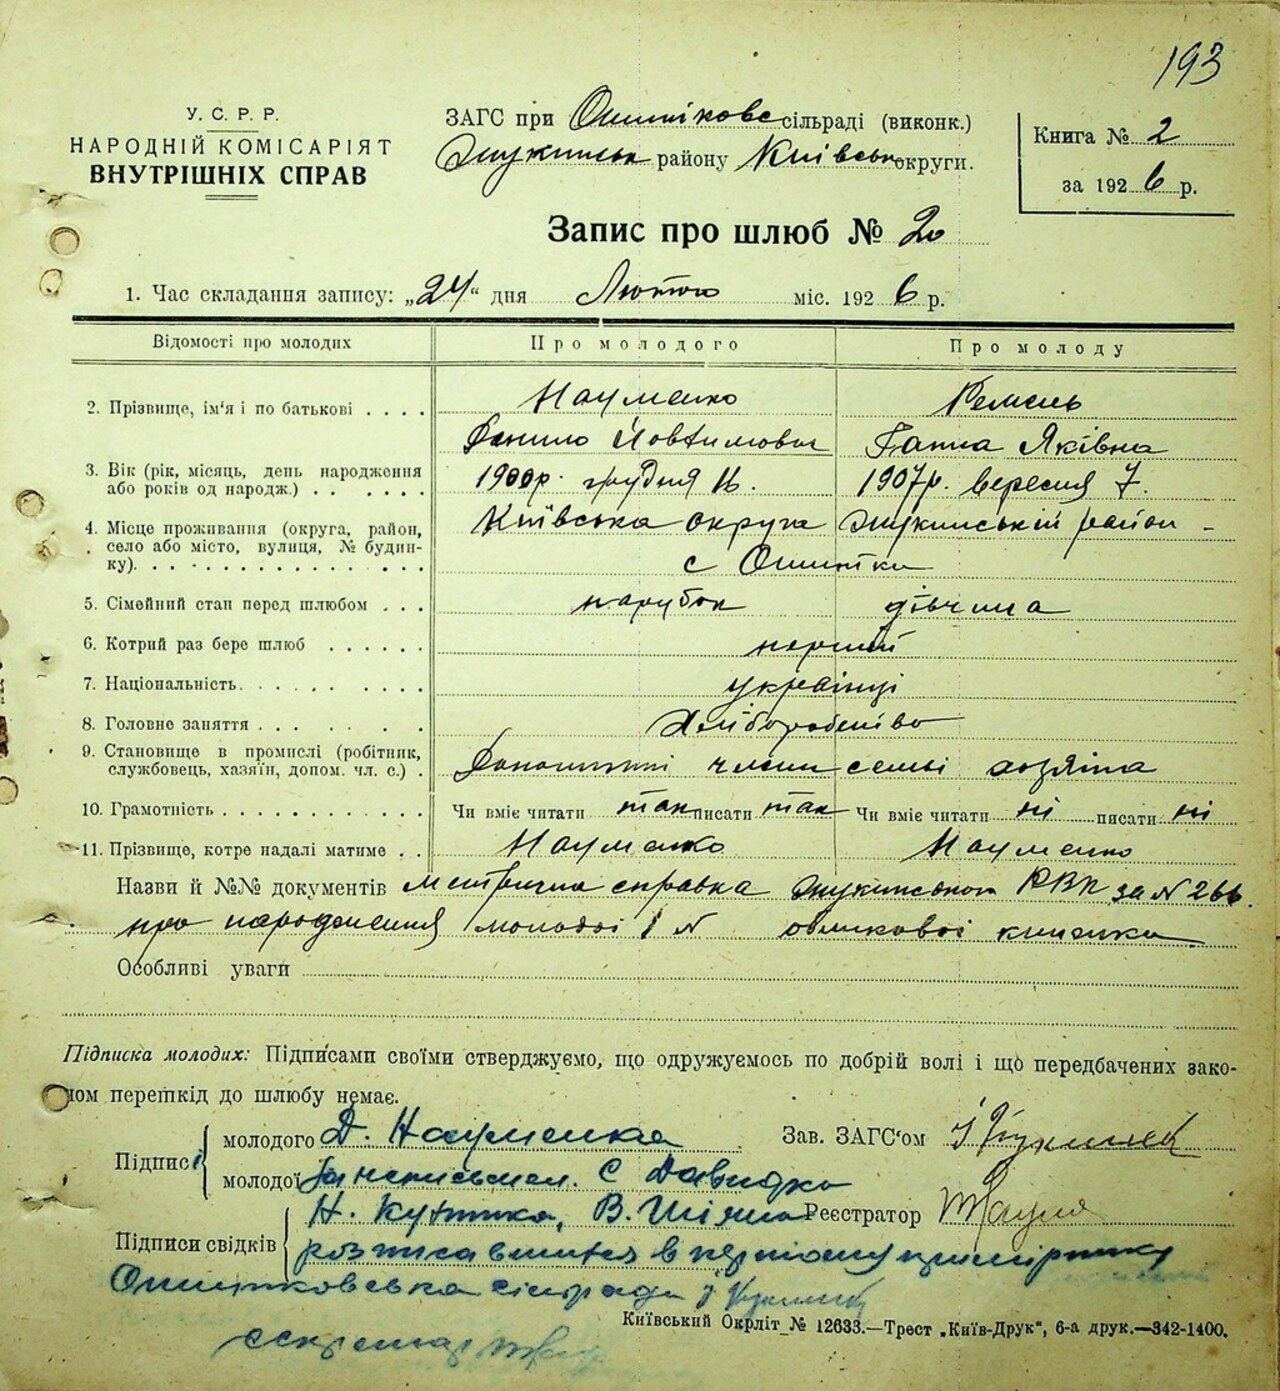 193
У. С. Р. Р.
НАРОДНІЙ КОМІСАРІЯТ
ВНУТРІШНІХ СПРАВ
ЗАГС при Ошитківс сільраді (виконк.)
Жукинськ району Київськ округи.
Книга № 2
за 1926 р.
Запис про шлюб № 20
1. Час складання запису: „24“ дня Лютого міс. 1926 р.
Відомості про молодих
Про молодого
Про молоду
2. Прізвище, ім'я і по батькові
Науменко
Ремень
Данило Йовтимович
Ганна Яківна
3. Вік (рік, місяць, день народження або років од народж.)
1900р. грудня
1907р. вересня 7.
4. Місце проживання (округа, район, село або місто, вулиця, № будинку).
Київська округа Жукинський район -
с Ошитки
5. Сімейний стан перед шлюбом
парубок
дівчина
6. Котрий раз бере шлюб
перший
7. Національність
українці
8. Головне заняття
Хліборобство
9. Становище в промислі (робітник, службовець, хазяїн, допом. чл. с.)
члени семьі хозяіна
10. Грамотність
Чи вміє читати так писати так
Чи вміє читати ні писати ні
11. Прізвище, котре надалі матиме
Науменко
Науменко
Назви й №№ документів метрична справка Жукинського РВК за N 266
про народження молодої і N облікової книжки
Особливі уваги
Підписка молодих: Підписами своїми стверджуємо, що одружуємось по добрій волі і що передбачених зако-
ном перешкід до шлюбу немає.
Підписі
молодого Д. Науменко
Зав. ЗАГС'ом
молодої За неписьмен. С Давидко
Підписи свідків
Н. В. Шіян
Реєстратор
росписавшихся в
сільради
секретар
Київський Окрліт № 12633.—Трест „Київ-Друк“, 6-а друк.—342-1400.